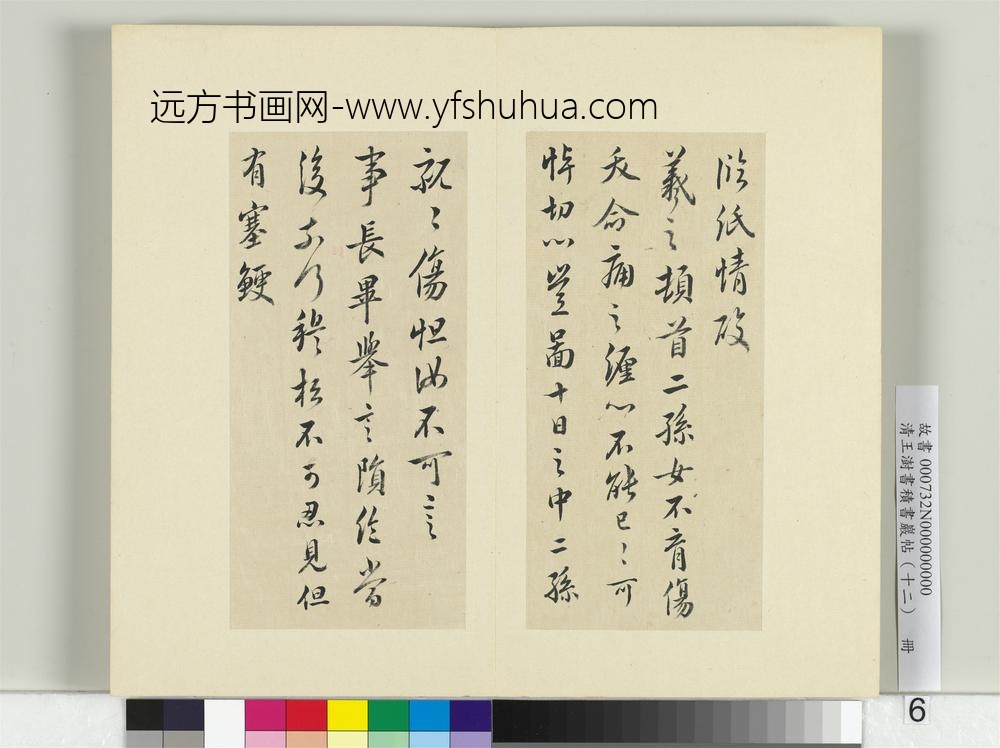 远方书画网-www.yfshuhua.com
臨紙情酸
羲之頓首二孫女不育傷
夭命痛之纏心不能已已可
悼切心豈圖十日之中二孫
傷怛汝不可言
事長畢舉言隕絕當
後 不可忍見但
有塞鯁
故書 000732N000000000
清王澍書積書巖帖(十二) 冊
6